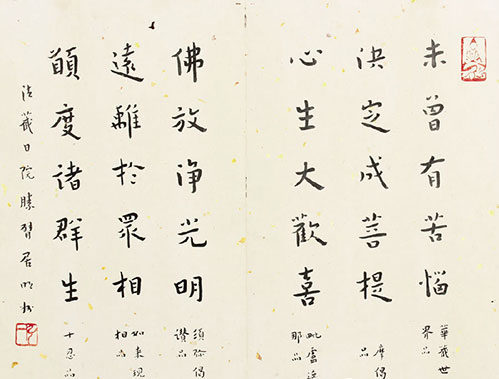 未曾有苦惱
華嚴世
界品
決定成菩提
偈
品
心生大歡喜
毗盧遮
那品
佛放淨光明
須弥偈
讚品
遠離於眾相
如來現
相品
願度諸群生
十忍品
法藏日院勝習居